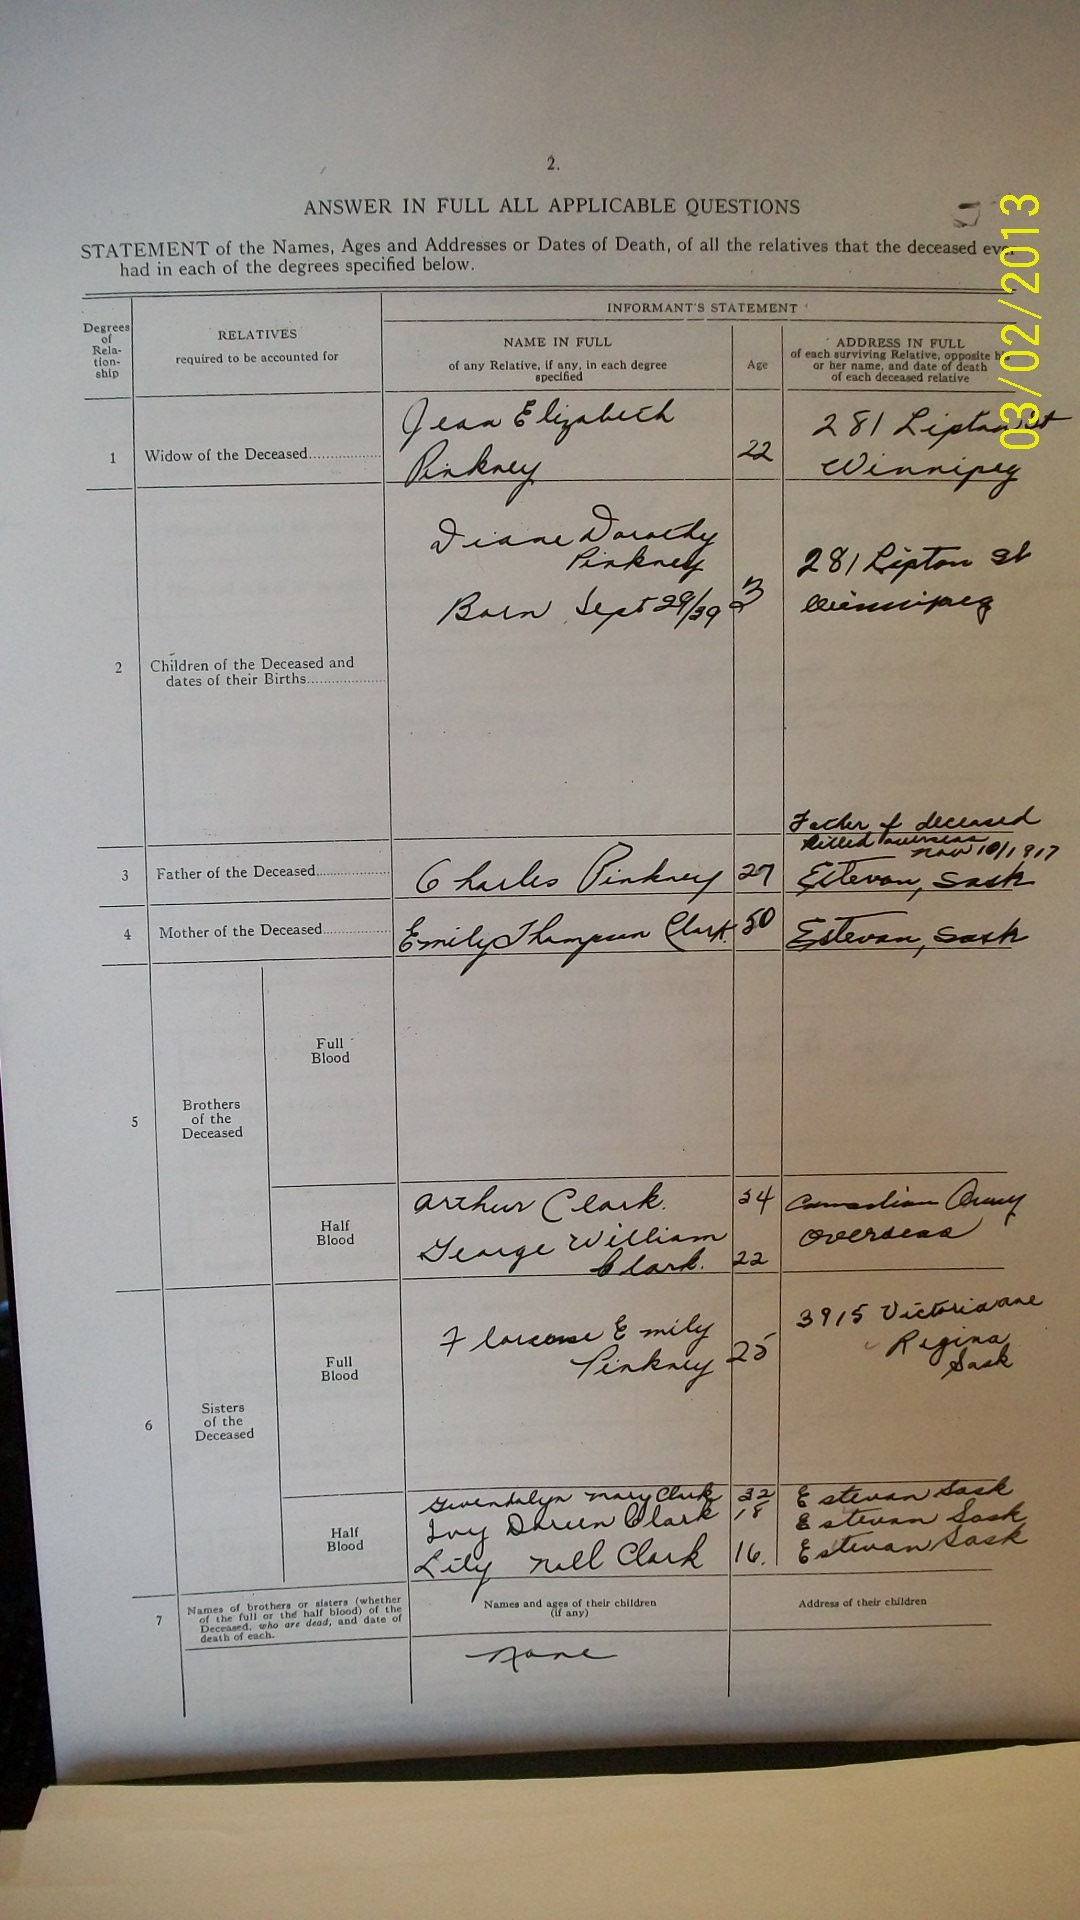 2.
ANSWER IN FULL ALL APPLICABLE QUESTIONS
STATEMENT of the Names, Ages and Addresses or Dates of Death, of all the relatives that the deceased ever
had in each of the degrees specified below.
03/02/2013
Degrees
of
Rela-
tion-
ship
RELATIVES
required to be accounted for
INFORMANT'S STATEMENT
NAME IN FULL
of any Relative, if any, in each degree
specified
Age
ADDRESS IN FULL
of each surviving Relative, opposite h
or her name, and date of death
of each deceased relative
1 Widow of the Deceased
Jean Elizabeth
Pinkney
22
281 Lipton St
Winnipeg
2 Children of the Deceased and
dates of their Births
Diane Dorothy
Pinkney
Born Sept 29/39
3
281 Lipton St
Winnipeg
3 Father of the Deceased
Charles Pinkney
27
Father of deceased
killed overseas
Nov 10/1917
Estevan, Sask
4 Mother of the Deceased
Emily Thompson Clark
50
Estevan, Sask
5
Brothers
of the
Deceased
Full
Blood
Half
Blood
Arthur Clark.
George William
Clark.
22
Canadian Army
Overseas
6
Sisters
of the
Deceased
Full
Blood
Florence Emily
Pinkney
25
3915 Victoria ave
Regina
Sask
Half
Blood
Gwendalyn Mary Clark Estevan Sask
Ivy Doreen Clark 18 Estevan Sask
Lily Nell Clark 16. Estevan Sask
7
Names of brothers or sisters (whether
of the full or the half blood) of the
Deceased, who are dead, and date of
death of each.
Names and ages of their children
(if any)
Address of their children
None